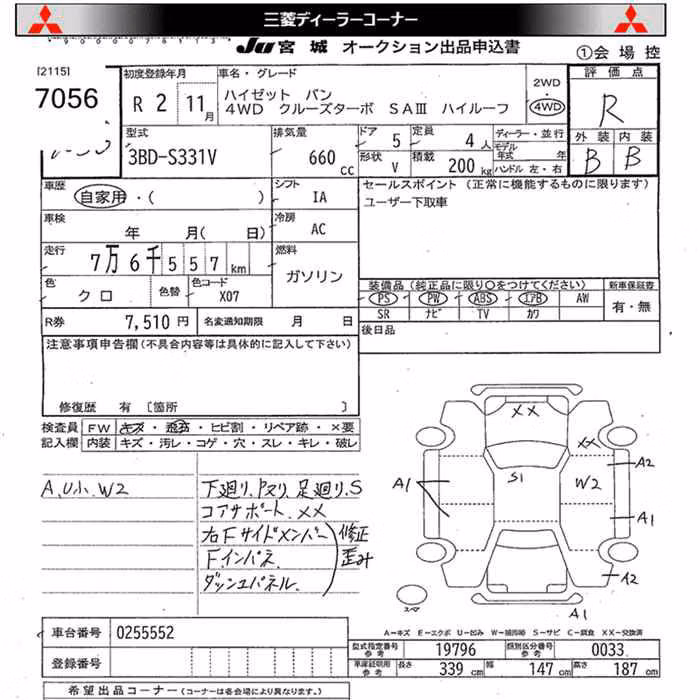 三菱ディーラーコーナー
JU 宮城 オークション出品申込書
①会場控
[2115]
7056
初度登録年月
R 2 11月
車名・グレード
ハイゼット バン
4WD クルーズターボ SAⅢ ハイルーフ
2WD
・
4WD
評価点
R
外装 内装
B B
型式
3BD-S331V
排気量
660 cc
ドア 5
定員 4人
形状 V
積載 200kg
ディーラー・並行
モデル年式 年
ハンドル 左・右
車歴
自家用・( )
シフト
IA
車検
年 月( 日)
冷房
AC
走行
7万6千557km
燃料
ガソリン
色
クロ
色替
色コード
X07
R券 7,510円
名変通知期限 月 日
セールスポイント (正常に機能するものに限ります)
ユーザー下取車
装備品(純正品に限り○をつけてください)
PS PW ABS エアB AW
SR ナビ TV カワ
新車保証書
有・無
後日品
注意事項申告欄(不具合内容等は具体的に記入して下さい)
修復歴 有 〔箇所 〕
検査員記入欄
FW キズ・飛石・ヒビ割・リペア跡・×要
内装 キズ・汚レ・コゲ・穴・スレ・キレ・破レ
A,U小,W2
下廻り,Pスリ,足廻り,S
コアサポート,××
右Fサイドメンバー
Fインパネ
ダッシュパネル
修正
歪み
××
××
A2
A1
S1
W2
A1
A2
A1
スペア
A−キズ E−エクボ U−凹み W−補修跡 S−サビ C−腐食 XX−交換済
車台番号 0255552
登録番号
型式指定番号 参考 19796
類別区分番号 参考 0033
車庫証明用 参考 長さ 339cm 幅 147cm 高さ 187cm
希望出品コーナー(コーナーは各会場により異なります。)